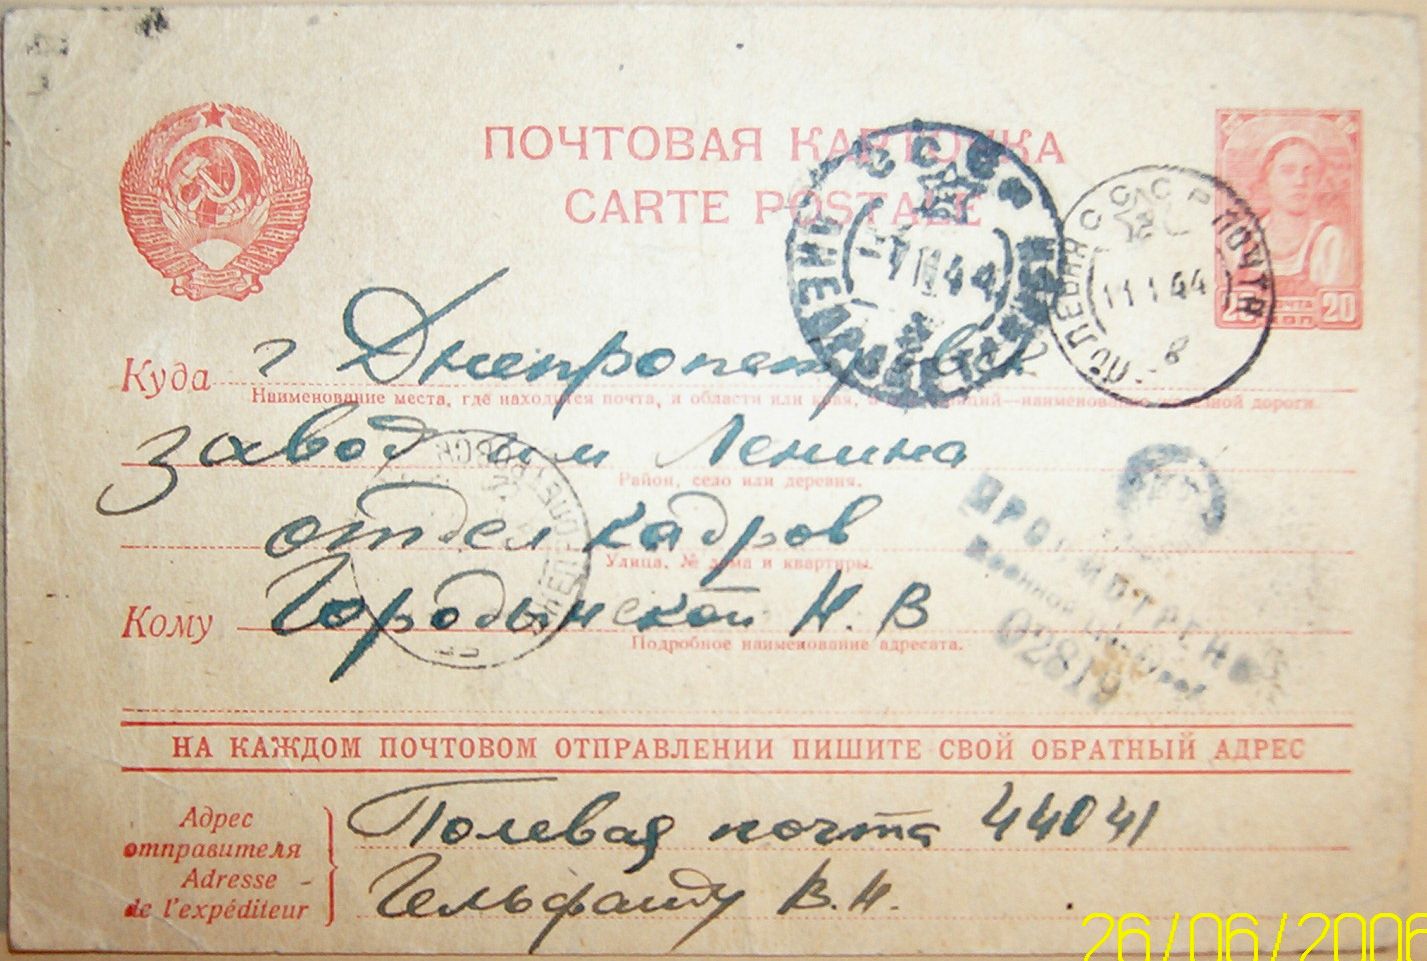 ПОЧТОВАЯ КАРТОЧКА
CARTE POSTALE
СССР
ДНЕПРОПЕТРОВСК
44
ПОЛЕВАЯ ПОЧТА СССР
11 1 44
20 ПОЧТА 20
КОП
Куда г Днепропетровск
Наименование места, где находится почта, и области или края, а для станций—наименование железной дороги.
завод им Ленина
Район, село или деревня.
отдел кадров
Улица, № дома и квартиры.
Кому Городынской Н. В
Подробное наименование адресата.
ПРОСМОТРЕНО
Военной Цензурой
02819
НА КАЖДОМ ПОЧТОВОМ ОТПРАВЛЕНИИ ПИШИТЕ СВОЙ ОБРАТНЫЙ АДРЕС
Адрес отправителя
Adresse de l'expéditeur
Полевая почта 44041
Гельфанду В. Н.
26/06/2006